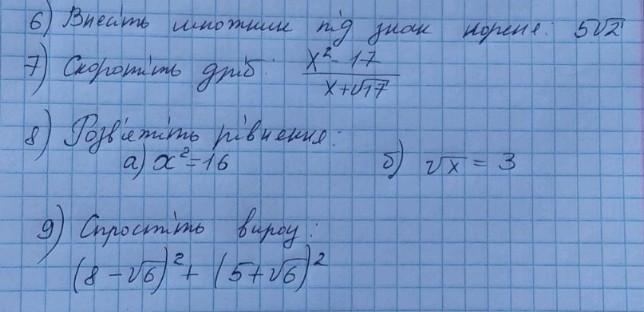 6) Внесіть множник під знак кореня: 5√2
7) Скоротіть дріб: (x² - 17)/(x + √17)
8) Розв'яжіть рівняння:
а) x² = 16 б) √x = 3
9) Спростіть вираз:
(8 - √6)² + (5 + √6)²